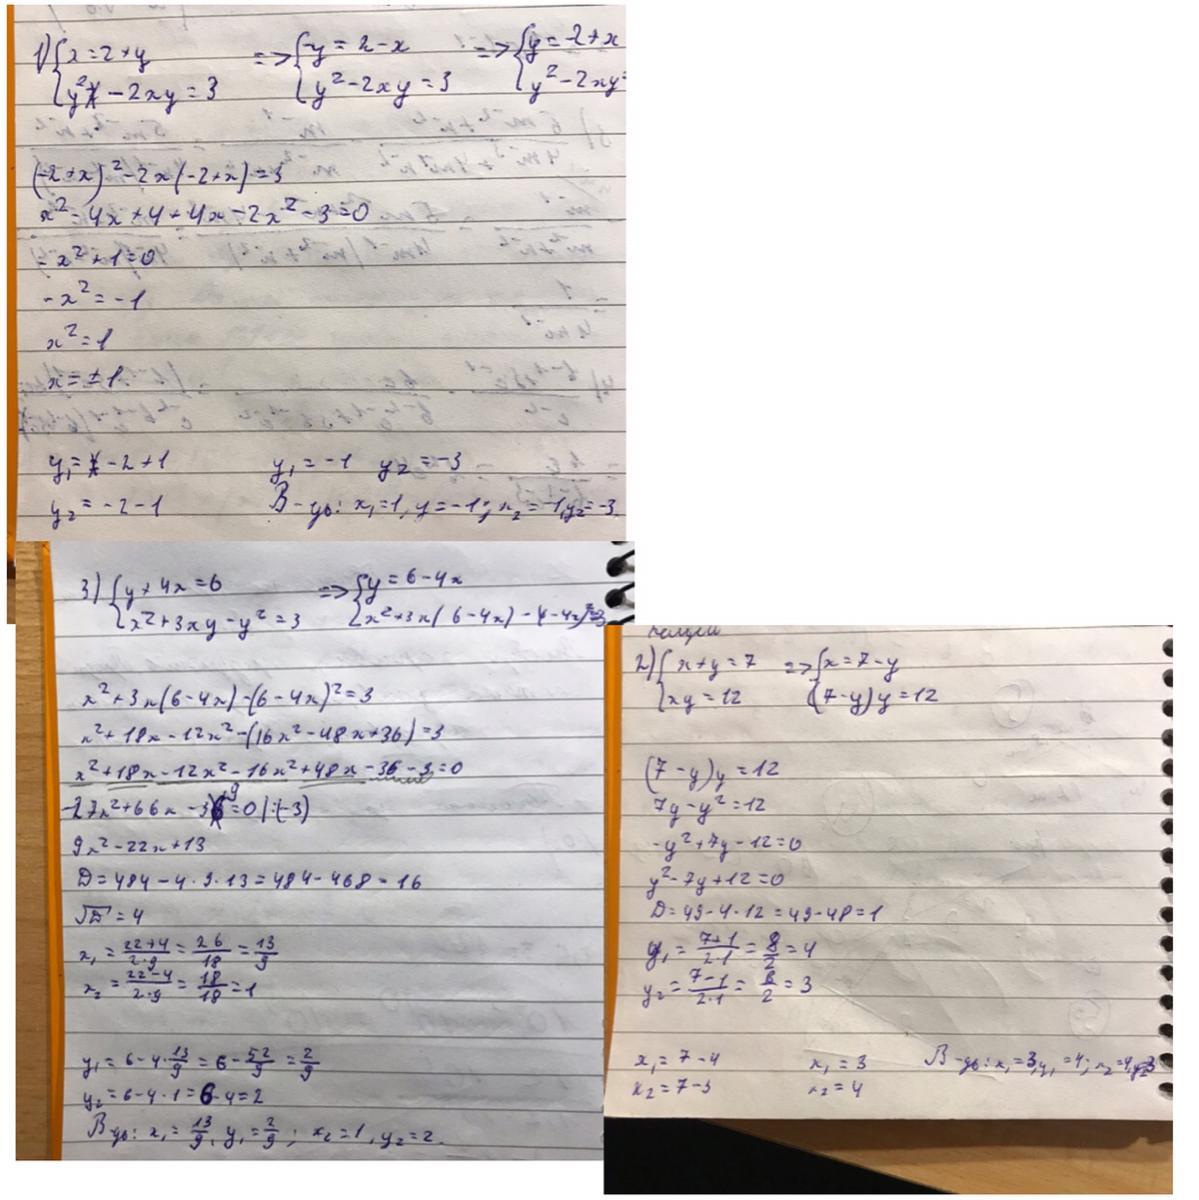 1) { x = 2 + y => { -y = 2 - x => { y = -2 + x
{ y² - 2xy = 3 { y² - 2xy = 3 { y² - 2xy =
(-2 + x)² - 2x(-2 + x) = 3
x² - 4x + 4 + 4x - 2x² - 3 = 0
-x² + 1 = 0
-x² = -1
x² = 1
x = ±1
y₁ = -2 + 1 y₁ = -1 y₂ = -3
y₂ = -2 - 1 В-дь: x₁ = 1, y = -1; x₂ = -1, y₂ = -3
3) { y + 4x = 6 => { y = 6 - 4x
{ x² + 3xy - y² = 3 { x² + 3x(6 - 4x) -
x² + 3x(6 - 4x) - (6 - 4x)² = 3
x² + 18x - 12x² - (16x² - 48x + 36) = 3
x² + 18x - 12x² - 16x² + 48x - 36 - 3 = 0
-27x² + 66x - 39 = 0 |:(-3)
9x² - 22x + 13
D = 484 - 4 · 9 · 13 = 484 - 468 = 16
√D = 4
x₁ = (22+4)/(2·9) = 26/18 = 13/9
x₂ = (22-4)/(2·9) = 18/18 = 1
y₁ = 6 - 4 · 13/9 = 6 - 52/9 = 2/9
y₂ = 6 - 4 · 1 = 6 - 4 = 2
В-дь: x₁ = 13/9, y₁ = 2/9; x₂ = 1, y₂ = 2.
2) { x + y = 7 => { x = 7 - y
{ xy = 12 (7 - y)y = 12
(7 - y)y = 12
7y - y² = 12
-y² + 7y - 12 = 0
y² - 7y + 12 = 0
D = 49 - 4 · 12 = 49 - 48 = 1
y₁ = (7+1)/(2·1) = 8/2 = 4
y₂ = (7-1)/(2·1) = 6/2 = 3
x₁ = 7 - 4 x₁ = 3 В-дь: x₁ = 3, y₁ = 4; x₂ = 4, y₂ = 3
x₂ = 7 - 3 x₂ = 4